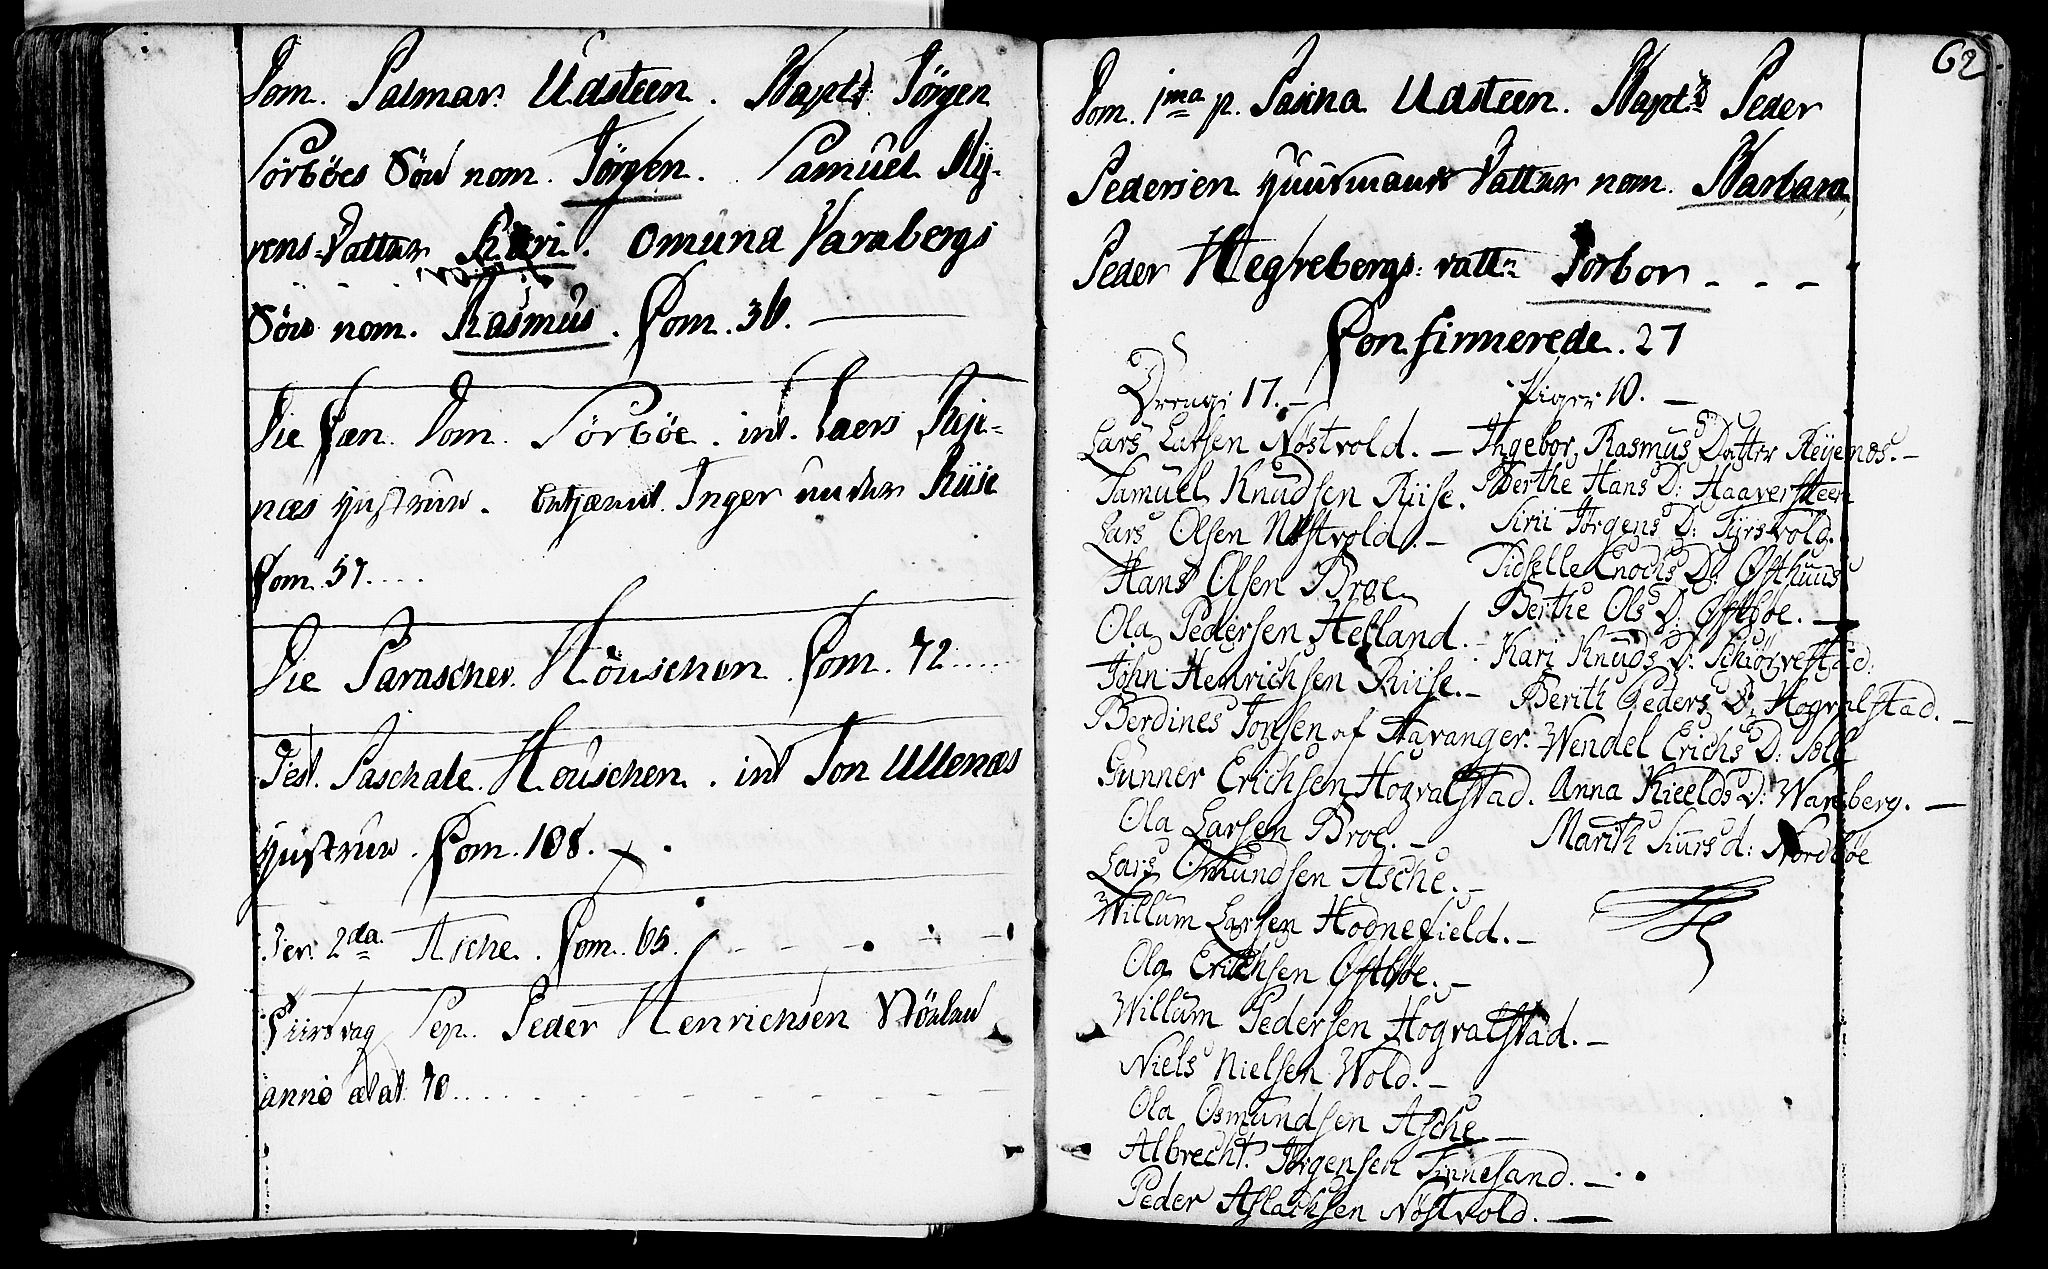 Dom. Palmar. Udsteen. Bapt: Jörgen
Sörböes Sön nom. Jörgen. Samuel Ry-
rens Datter Kari. Omund Varabergs
Sön nom. Rasmus. Com. 36.
Die Cæn. Dom. Sörböe. int. Laers Reje-
næs hustrue. Inger under Riise
Com. 57....
Die Paraschev. Höuschen. Com. 72.....
Fest. Paschale. Höuschen. int Jon Ullenæs
hustrue. Com. 108.
Fer. 2da Asche. Com. 65.
Tiirsdag Sep. Peder Henrichsen
anno ætat. 70....
62.
Dom. 1ma p. Pascha Udsteen. Bapt: Peder
Pedersen Datter nom. Barbara
Peder Hegrebergs: datt: Torbor - - -
Confirmerede. 27
Drenge 17. -
Lars Larsen Nöstvold. -
Samuel Knudsen Riise.
Lars Olsen Nöstvold. -
Hans Olsen Broe
Ola Pedersen Helland. -
John Henrichsen Riise. -
Berdines Jonsen af Stavanger.
Gunner Erichsen Hogvalstad.
Ola Larsen Broe. -
Lars Omundsen Asche. -
Willum Larsen Hodnefield. -
Ola Erichsen Østbøe. -
Willum Pedersen Hogvalstad. -
Niels Nielsen Wold. -
Ola Osmundsen Asche -
Albrecht Jörgensen Finnesand. -
Peder Aslachsen Nöstvold. -
Piger 10. -
Ingebor Rasmus Datter Reijenæs. -
Berthe Hans D: Haaversteen
Sirii Jörgens D: Fiirsvold.
Sidselle Enochs D: Østhuus
Berthe Ols D: Østbøe. -
Kari Knuds D: Schiörvestad.
Berith Peders D: Hogvalstad. -
Wendel Erichs D: Soll
Anna Kieelds D: Wareberg. -
Marith Siurs d: Nordbøe